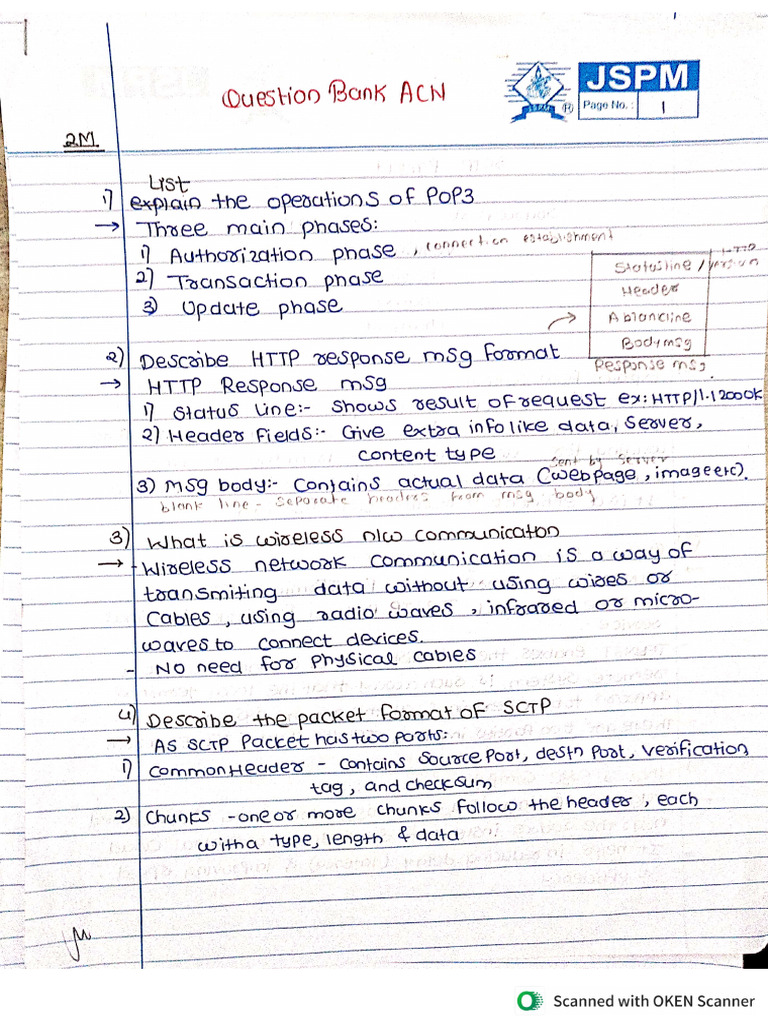 Question Bank ACN
JSPM
Page No.: 1
2M.
List
1) explain the operations of POP3
→ Three main phases:
1) Authorization phase, connection establishment
2) Transaction phase
3) Update phase
HTTP
Statusline / version
Header
A blankline
Bodymsg
Response msg.
2) Describe HTTP response msg format
→ HTTP Response msg
1) Status Line:- Shows result of request ex: HTTP/1.1 200 OK
2) Header Fields:- Give extra info like data, server,
content type
sent by server
3) Msg body:- Contains actual data (webpage, image etc).
blank line - separate headres from msg body
3) What is wireless n/w communication
→ - Wireless network communication is a way of
transmiting data without using wires or
cables, using radio waves, infrared or micro-
waves to connect devices.
- No need for physical cables
4) Describe the packet format of SCTP
→ As SCTP Packet has two ports:
1) Common Header - contains Source Port, destn Port, verification
tag, and checksum
2) Chunks - one or more chunks follow the header, each
with a type, length & data
Scanned with OKEN Scanner